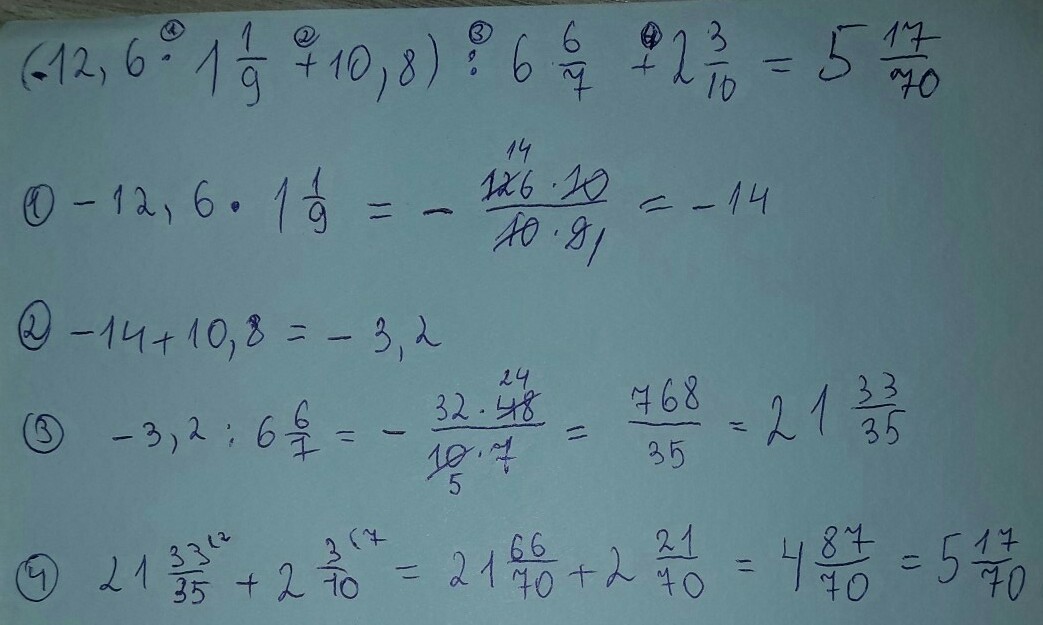 (-12,6 · 1 1/9 + 10,8) : 6 6/7 + 2 3/10 = 5 17/70
① ② ③ ④
① -12,6 · 1 1/9 = - 126 · 10 / 10 · 9 = -14
14
1
② -14 + 10,8 = -3,2
③ -3,2 : 6 6/7 = - 32 · 48 / 10 · 7 = 768/35 = 21 33/35
24
5
④ 21 33/35 (2 + 2 3/10 (7 = 21 66/70 + 2 21/70 = 4 87/70 = 5 17/70